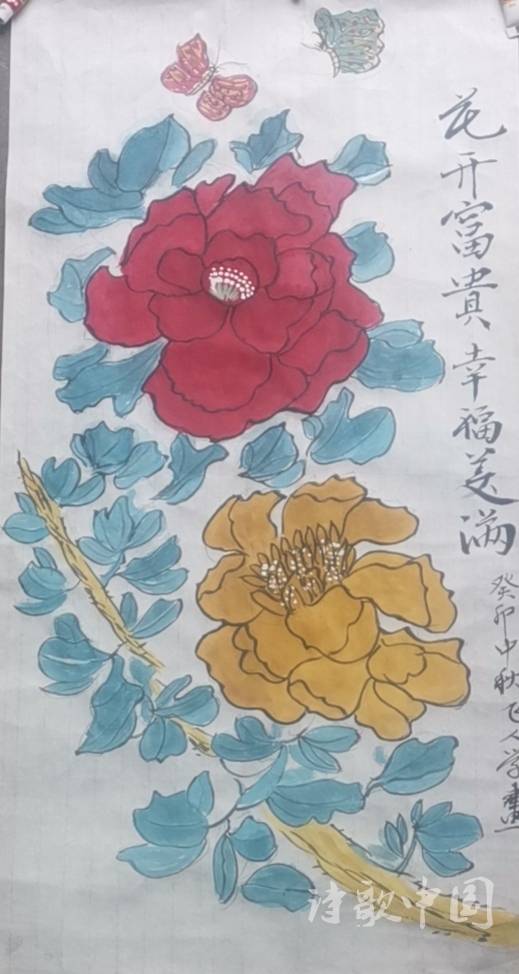 花开富貴幸福美满
癸卯中秋飞人学畫
诗歌中国